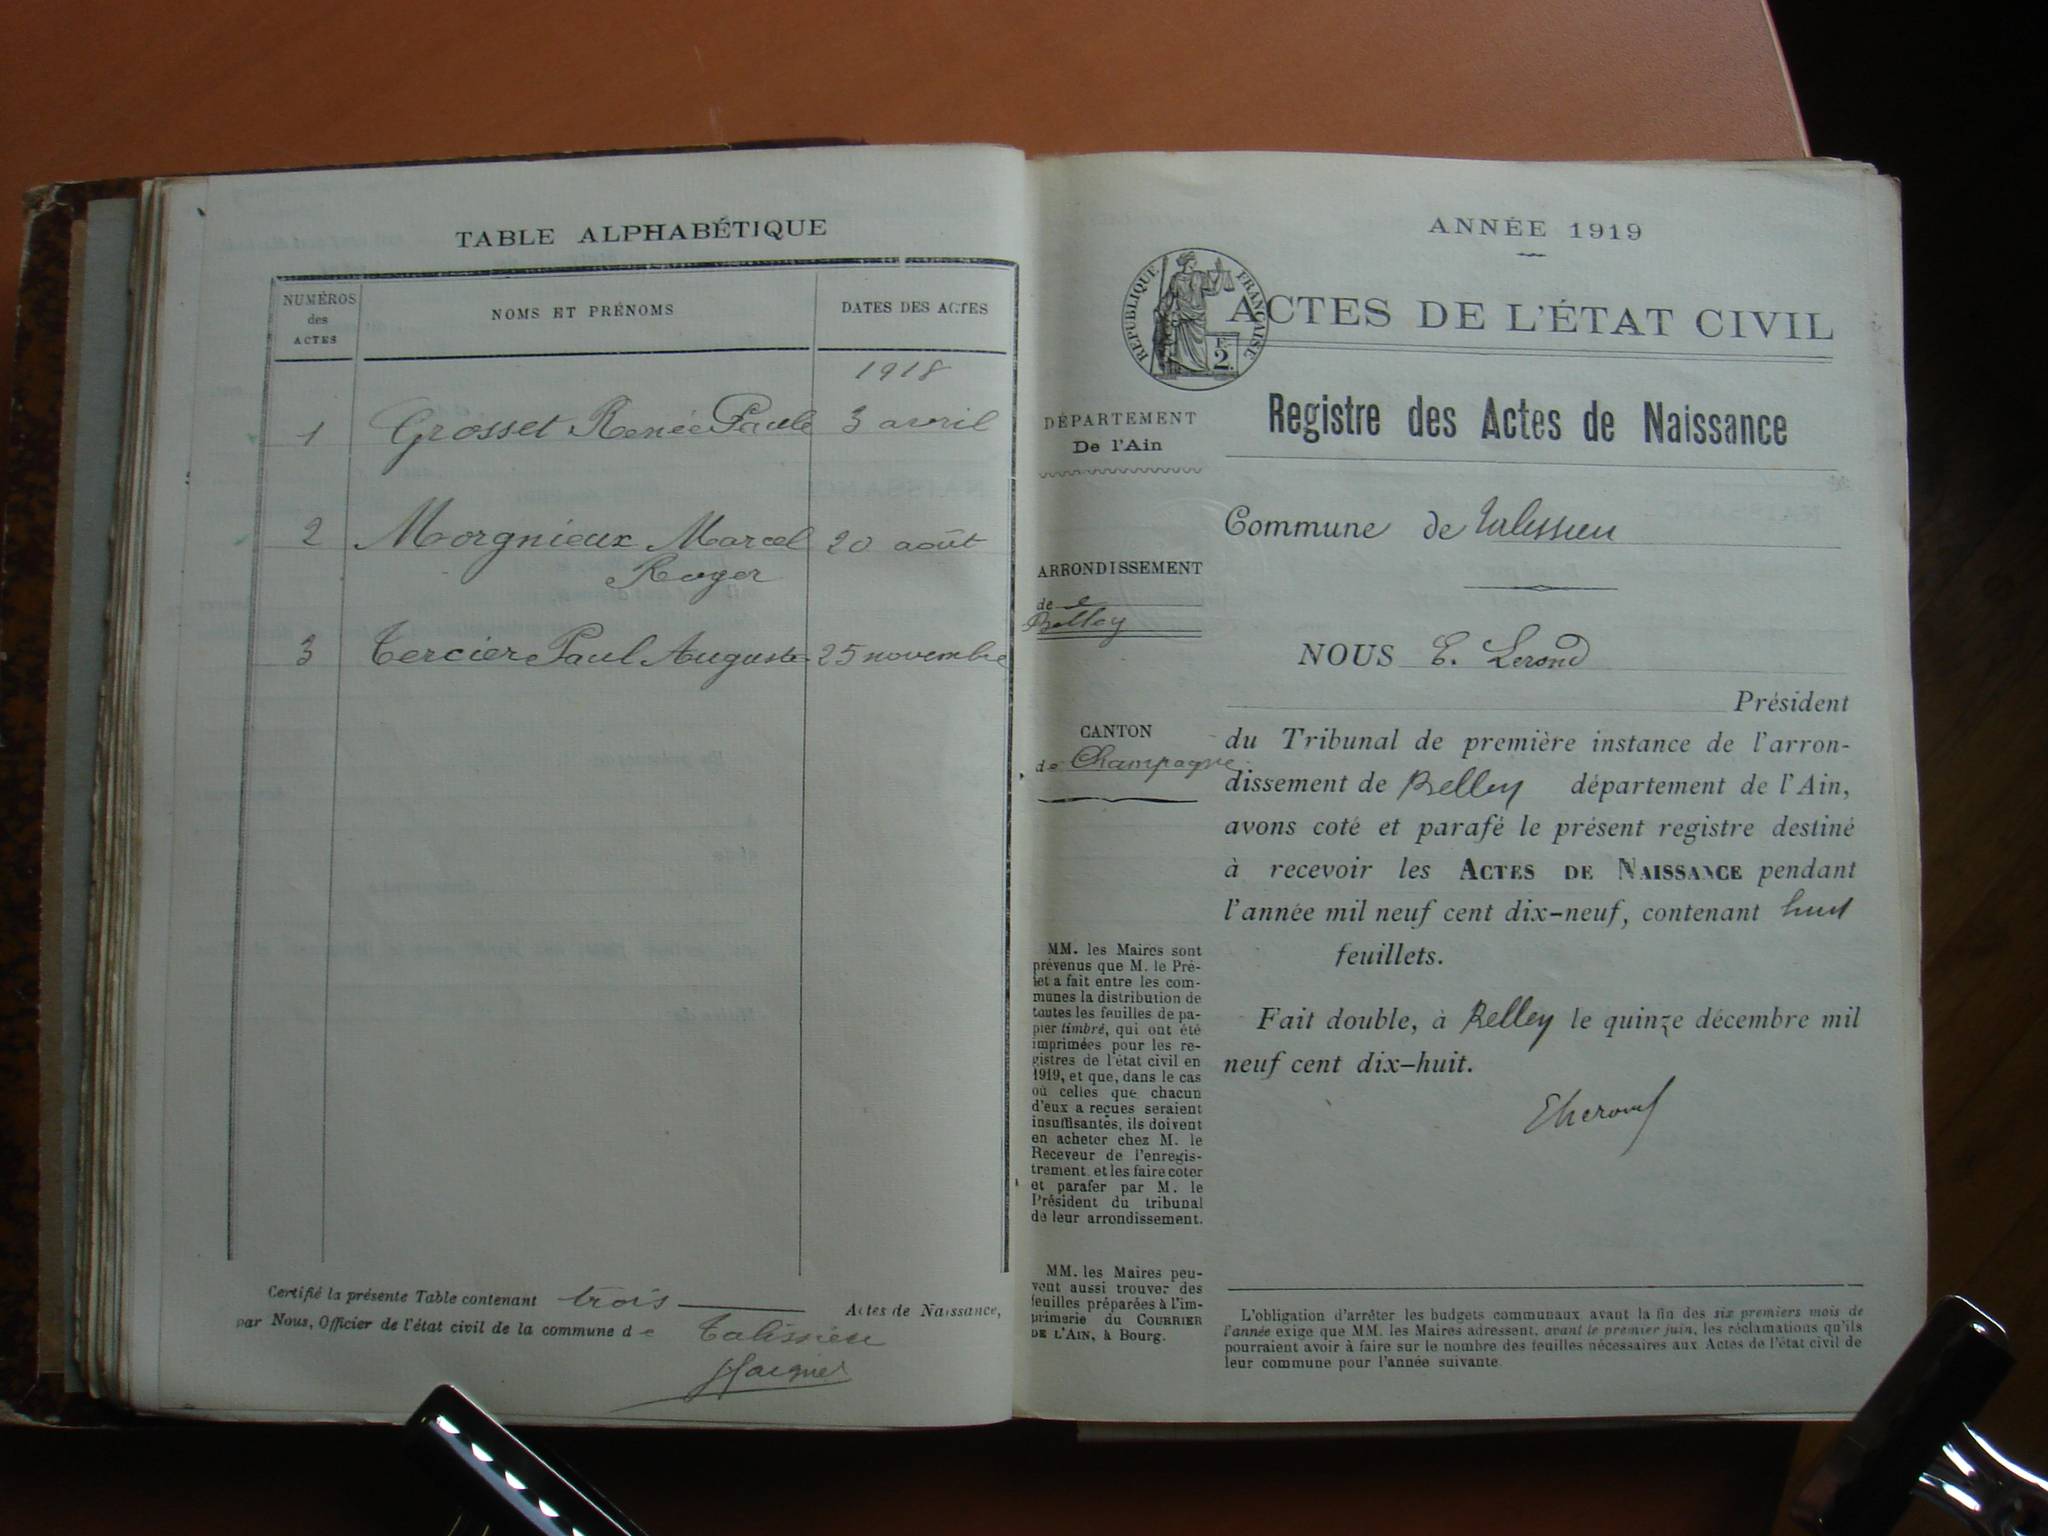 TABLE ALPHABÉTIQUE
NUMÉROS
des
ACTES
NOMS ET PRÉNOMS
DATES DES ACTES
1918
1 Grosset Renée Paule 3 avril
2 Morgnieux Marcel 20 août
Roger
3 Tercier Paul Auguste 25 novembre
Certifié la présente Table contenant trois Actes de Naissance,
par Nous, Officier de l'état civil de la commune de Talissieu
ANNÉE 1919
RÉPUBLIQUE FRANÇAISE
F.
2.
ACTES DE L'ÉTAT CIVIL
Registre des Actes de Naissance
DÉPARTEMENT
De l'Ain
Commune de Talissieu
ARRONDISSEMENT
de
Belley
NOUS E. Lerond
Président
CANTON
de Champagne
du Tribunal de première instance de l'arron-
dissement de Belley département de l'Ain,
avons coté et parafé le présent registre destiné
à recevoir les ACTES DE NAISSANCE pendant
l'année mil neuf cent dix-neuf, contenant huit
feuillets.
Fait double, à Belley le quinze décembre mil
neuf cent dix-huit.
MM. les Maires sont
prévenus que M. le Pré-
fet a fait entre les com-
munes la distribution de
toutes les feuilles de pa-
pier timbré, qui ont été
imprimées pour les re-
gistres de l'état civil en
1919, et que, dans le cas
où celles que chacun
d'eux a reçues seraient
insuffisantes, ils doivent
en acheter chez M. le
Receveur de l'enregis-
trement et les faire coter
et parafer par M. le
Président du tribunal
de leur arrondissement.
MM. les Maires peu-
vent aussi trouver des
feuilles préparées à l'im-
primerie du COURRIER
DE L'AIN, à Bourg.
L'obligation d'arrêter les budgets communaux avant la fin des six premiers mois de
l'année exige que MM. les Maires adressent, avant le premier juin, les réclamations qu'ils
pourraient avoir à faire sur le nombre des feuilles nécessaires aux Actes de l'état civil de
leur commune pour l'année suivante.